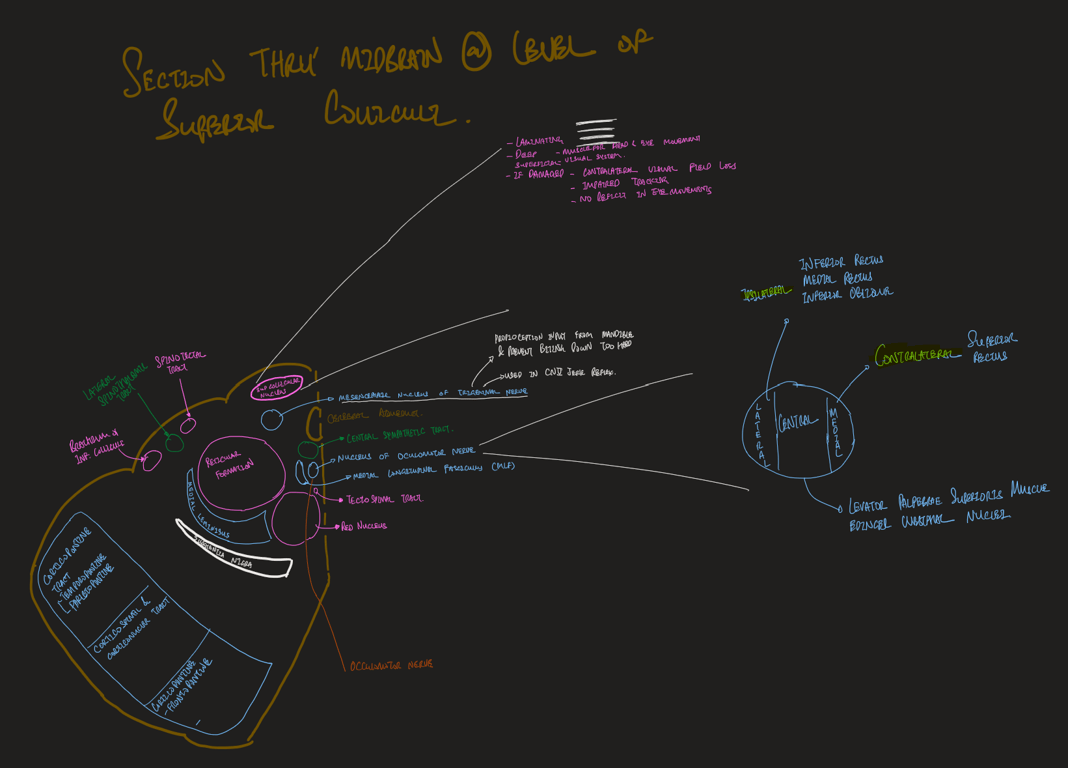 SECTION THRU' MIDBRAIN @ LEVEL OF
SUPERIOR COLICULI.
- LAMINATING
- DEEP - MUSCLE FOR HEAD & EYE MOVEMENT
SUPERFICIAL - VISUAL SYSTEM.
- IF DAMAGED - CONTRALATERAL VISUAL FIELD LOSS
- IMPAIRED TRACKING
- NO DEFICIT IN EYE MOVEMENTS
INFERIOR RECTUS
MEDIAL RECTUS
INFERIOR OBLIQUE
IPSILATERAL
SUPERIOR
RECTUS
CONTRALATERAL
LATERAL
CENTRAL
MEDIAL
LEVATOR PALPEBRAE SUPERIORIS MUSCLE
EDINGER WESTPHAL NUCLEI
PROPIOCEPTION INPUT FROM MANDIBLE
& PREVENT BITING DOWN TOO HARD
USED IN CNV JERK REFLEX.
SPINOTECTAL
TRACT
LATERAL
SPINOTHALAMIC
TRACT
BRACHIUM OF
INF. COLLICULI
SUP COLLICULAR
NUCLEUS
MESENCEPHALIC NUCLEUS OF TRIGEMINAL NERVE
CEREBRAL AQUEDUCT.
CENTRAL SYMPATHETIC TRACT.
NUCLEUS OF OCULOMOTOR NERVE
MEDIAL LONGITUDINAL FASICULUS (MLF)
TECTOSPINAL TRACT
RED NUCLEUS
RETICULAR
FORMATION
MEDIAL LEMNISCUS
SUBSTANTIA NIGRA
CORTICOPONTINE
TRACT
- TEMPOROPONTINE
- PARIETOPONTINE
CORTICOSPINAL &
CORTICONUCLEAR TRACT
CORTICOPONTINE
- FRONTOPONTINE
OCCULOMOTOR NERVE